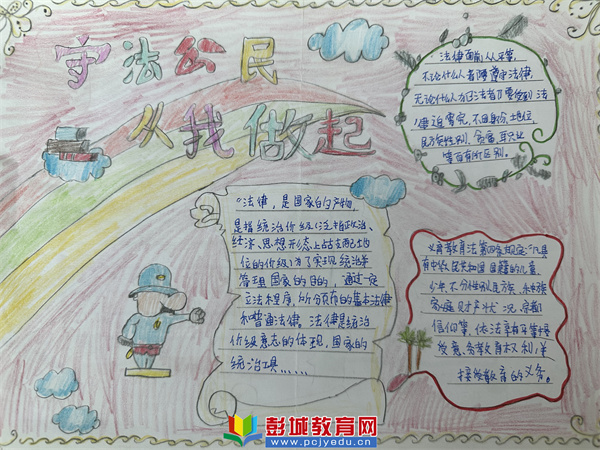 守法公民
从我做起
法律面前人人平等,
不论什么人者障尊守法律,
无论什么人
律追究,不因身份、地位,
民族性别、贫富、职业
等而有所区别。
“法律,是国家的产物,
是指统治价级(泛指政治、
经济、思想形态上占支配地
位的价级)为了实现统治并
管理国家的目的,通过一定
立法程序,所颁布的基本法律
和普通法律。法律是统治
价级意志的体现,国家的
统治工具……
义务教育法第四条规定:凡具
有中华人民共和国国籍的儿童
少年,不分性别、民族、种族、
家庭财产状况、宗教
信仰等,依法享有平等接
受义务教育权利,并
接受教育的义务。
彭城教育网
www.pcjyedu.cn